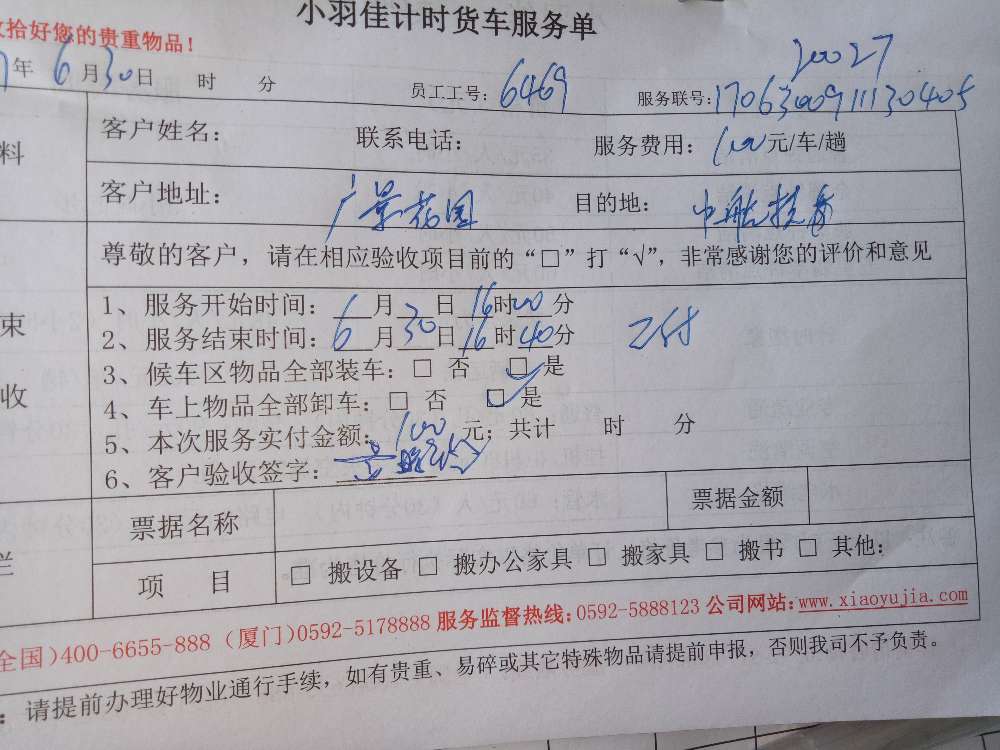 小羽佳计时货车服务单
拾好您的贵重物品！
年6月30日 时 分 员工工号：6469 服务联号：1706300911130405
20027
料
客户姓名： 联系电话： 服务费用：100元/车/趟
客户地址：广景花园 目的地：中航技
尊敬的客户，请在相应验收项目前的“□”打“√”，非常感谢您的评价和意见
束
收
1、服务开始时间：6月30日16时00分
2、服务结束时间：6月30日16时40分
3、候车区物品全部装车：□ 否 ☑ 是
4、车上物品全部卸车：□ 否 ☑ 是
5、本次服务实付金额：100元；共计 时 分
6、客户验收签字：
栏
票据名称 票据金额
项 目 □ 搬设备 □ 搬办公家具 □ 搬家具 □ 搬书 □ 其他：
全国)400-6655-888（厦门)0592-5178888 服务监督热线：0592-5888123 公司网站：www.xiaoyujia.com
：请提前办理好物业通行手续，如有贵重、易碎或其它特殊物品请提前申报，否则我司不予负责。